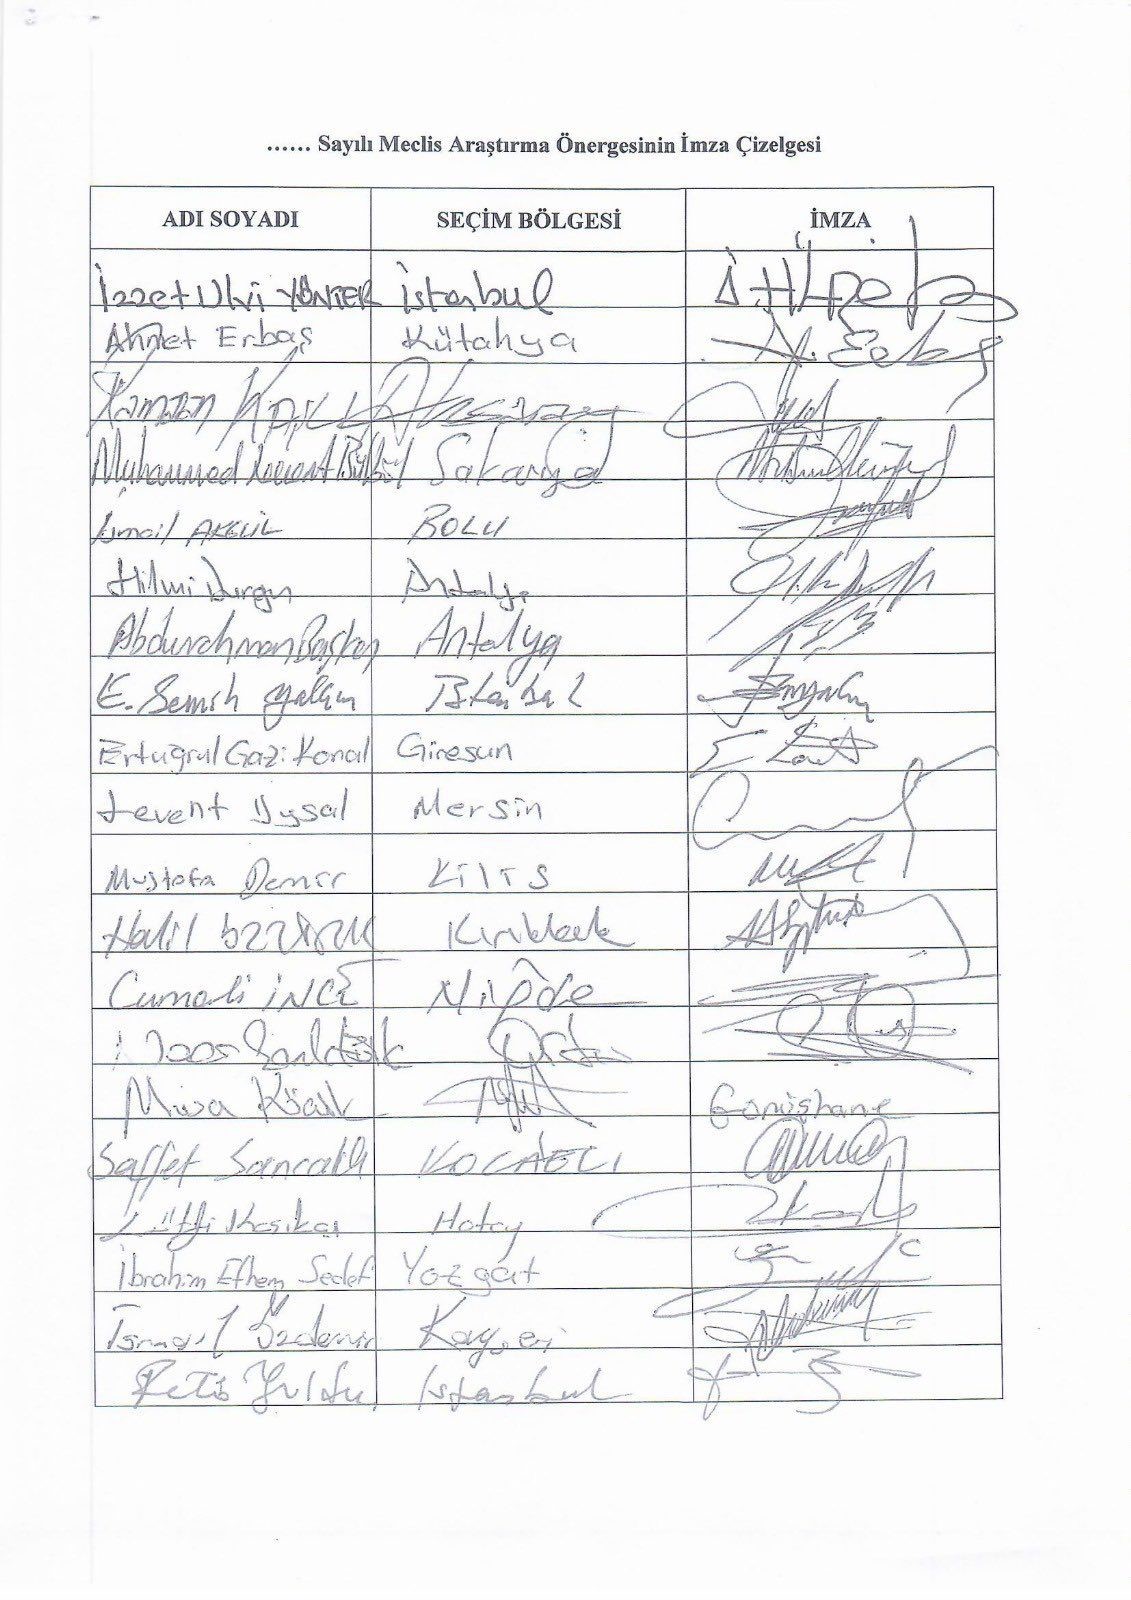 ...... Sayılı Meclis Araştırma Önergesinin İmza Çizelgesi
ADI SOYADI SEÇİM BÖLGESİ İMZA
İzzet Ulvi YÖNTER İstanbul
Ahmet Erbaş Kütahya
Ramazan Kaşlı Aksaray
Muhammed Levent Bülbül Sakarya
İsmail AKGÜL BOLU
Hilmi Durgun Antalya
Abdurrahman Başkan Antalya
E. Semih Yalçın İstanbul
Ertuğrul Gazi Konal Giresun
Levent Uysal Mersin
Mustafa Demir KiliS
Halil ÖZTÜRK Kırıkkale
Cumali İNCE Niğde
Naci Şanlıtürk Ordu
Musa Küçük Gümüşhane
Saffet Sancaklı KOCAELİ
Lütfi Kaşıkçı Hatay
İbrahim Ethem Sedef Yozgat
İsmail Özdemir Kayseri
Feti Yıldız İstanbul